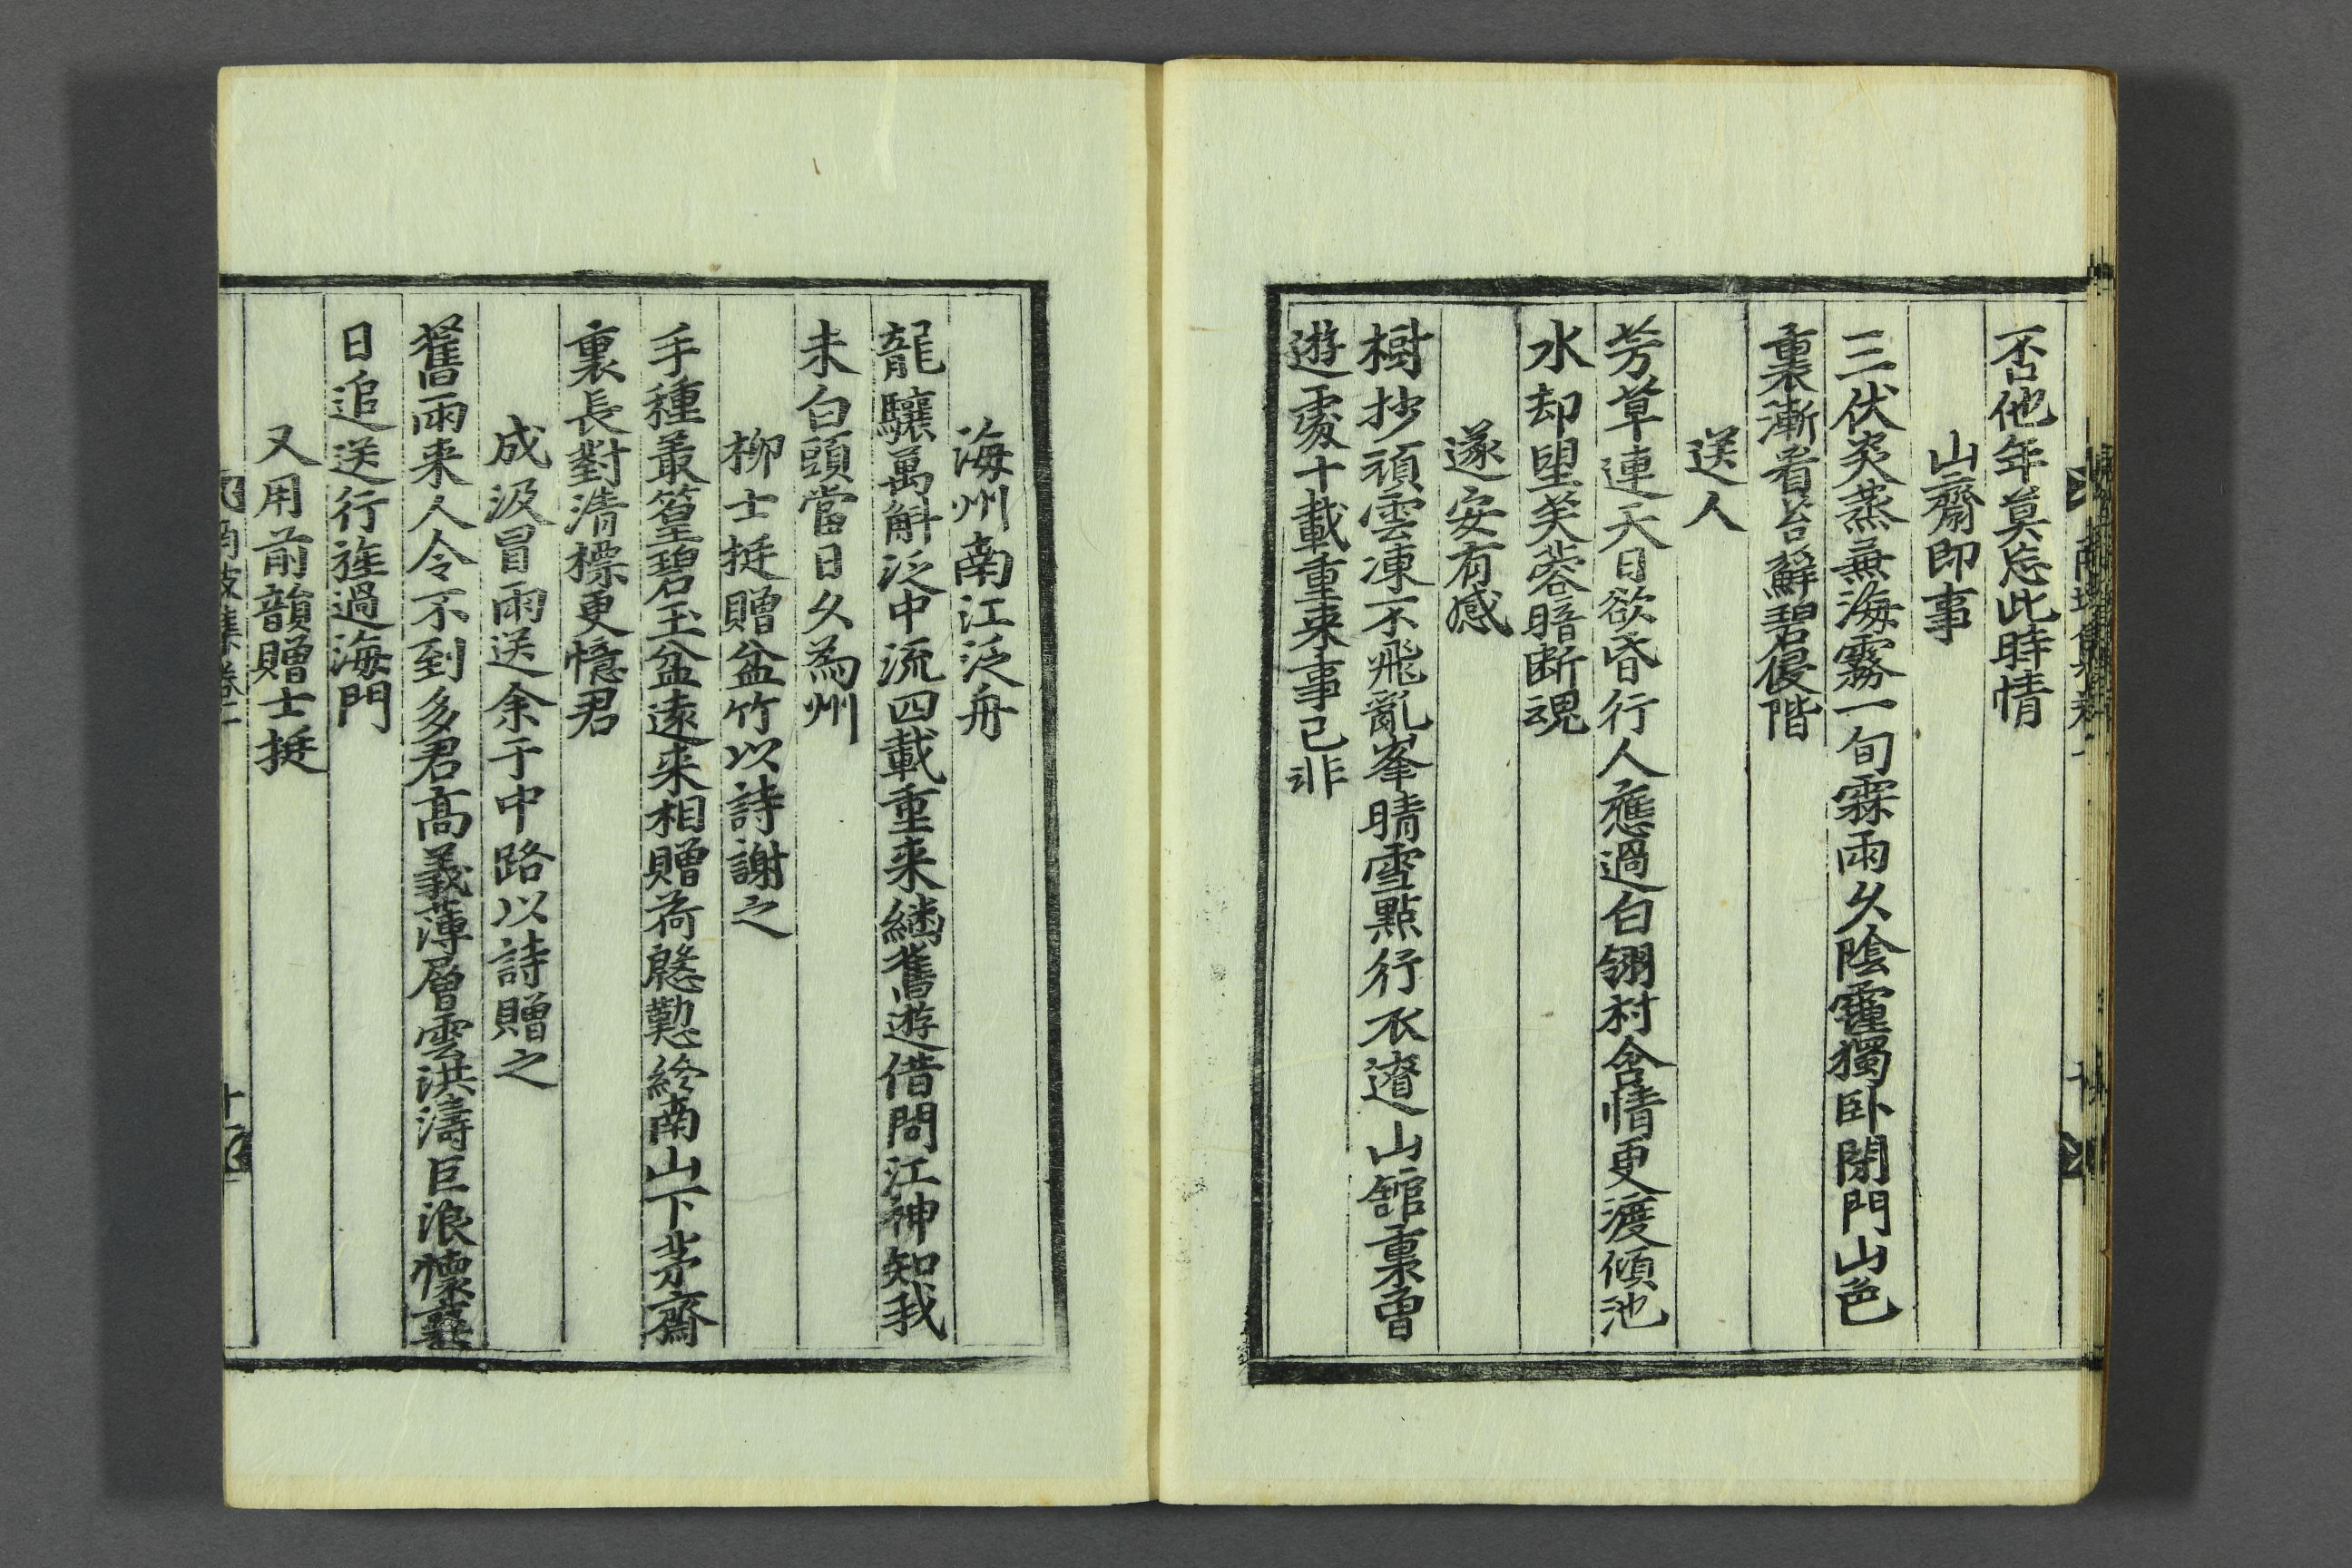 否他年莫忘此時情
山齋即事
三伏炎蒸無海霧一旬霖雨久陰霾獨卧閉門山色
裏漸看苔蘚碧侵階
送人
芳草連天日欲昏行人應過白翎村含情更渡傾池
水却望芙蓉暗断魂
遂安有感
樹抄頑雲凍不飛亂峯晴雪點行衣遼山舘裏曾
遊處十載重来事已非
海州南江泛舟
龍驤萬斛泛中流四載重来續舊遊借問江神知我
未白頭當日久為州
柳士挺贈盆竹以詩謝之
手種叢篁碧玉盆遠来相贈荷慇懃終南山下茅齋
裏長對清標更憶君
成汲冒雨送余于中路以詩贈之
舊雨来人今不到多君高義薄層雲洪濤巨浪懷襄
日追送行旌過海門
又用前韻贈士挺